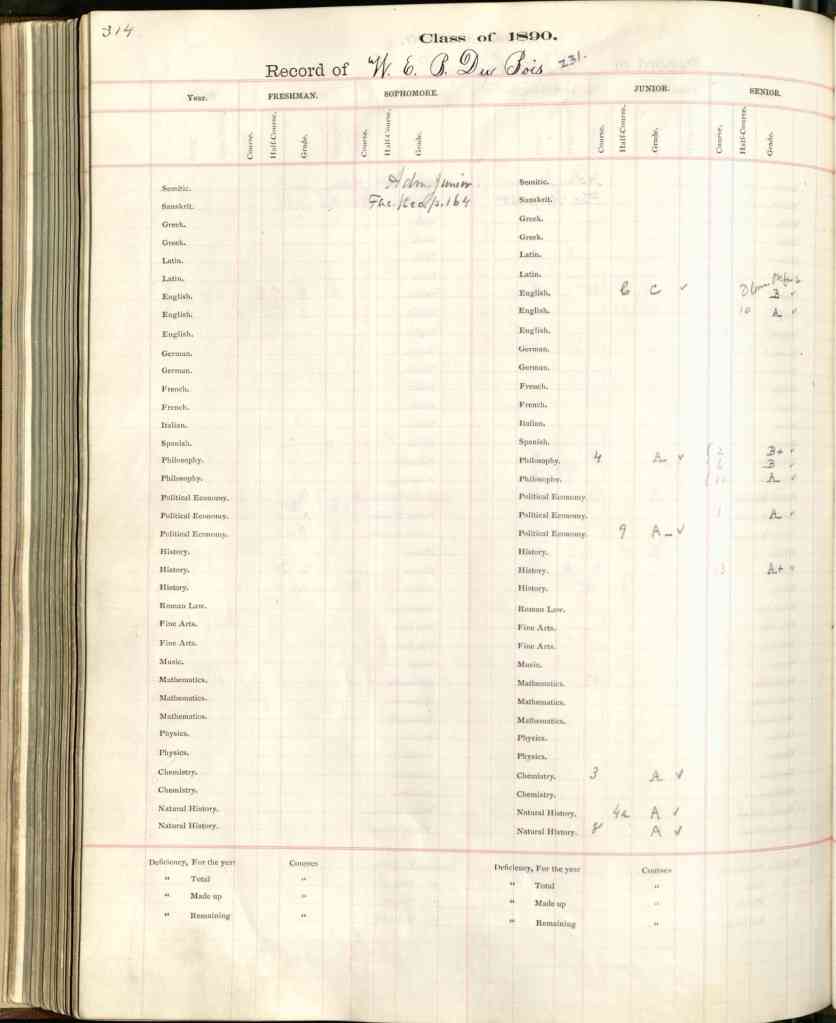 314
Class of 1890.
Record of W. E. B. Du Bois 231.
Year. FRESHMAN. SOPHOMORE. JUNIOR. SENIOR.
Course. Half-Course. Grade. Course. Half-Course. Grade. Course. Half-Course. Grade. Course. Half-Course. Grade.
Semitic. Adm. Junior Semitic.
Sanskrit. Fac. Rec. p. 164 Sanskrit.
Greek. Greek.
Greek. Greek.
Latin. Latin.
Latin. Latin.
English. English. C C ✓ B ✓
English. English. 10 A ✓
English. English.
German. German.
German. German.
French. French.
French. French.
Italian. Italian.
Spanish. Spanish.
Philosophy. Philosophy. 4 A ✓ { 2 B+ ✓
6 B ✓
Philosophy. Philosophy. A ✓
Political Economy. Political Economy.
Political Economy. Political Economy. 1 A ✓
Political Economy. Political Economy. 9 A- ✓
History. History.
History. History. 13 A+ ✓
History. History.
Roman Law. Roman Law.
Fine Arts. Fine Arts.
Fine Arts. Fine Arts.
Music. Music.
Mathematics. Mathematics.
Mathematics. Mathematics.
Mathematics. Mathematics.
Physics. Physics.
Physics. Physics.
Chemistry. Chemistry. 3 A ✓
Chemistry. Chemistry.
Natural History. Natural History. 4a A ✓
Natural History. Natural History. 8 A ✓
Deficiency, For the year Courses Deficiency, For the year Courses
" Total " " Total "
" Made up " " Made up "
" Remaining " " Remaining "